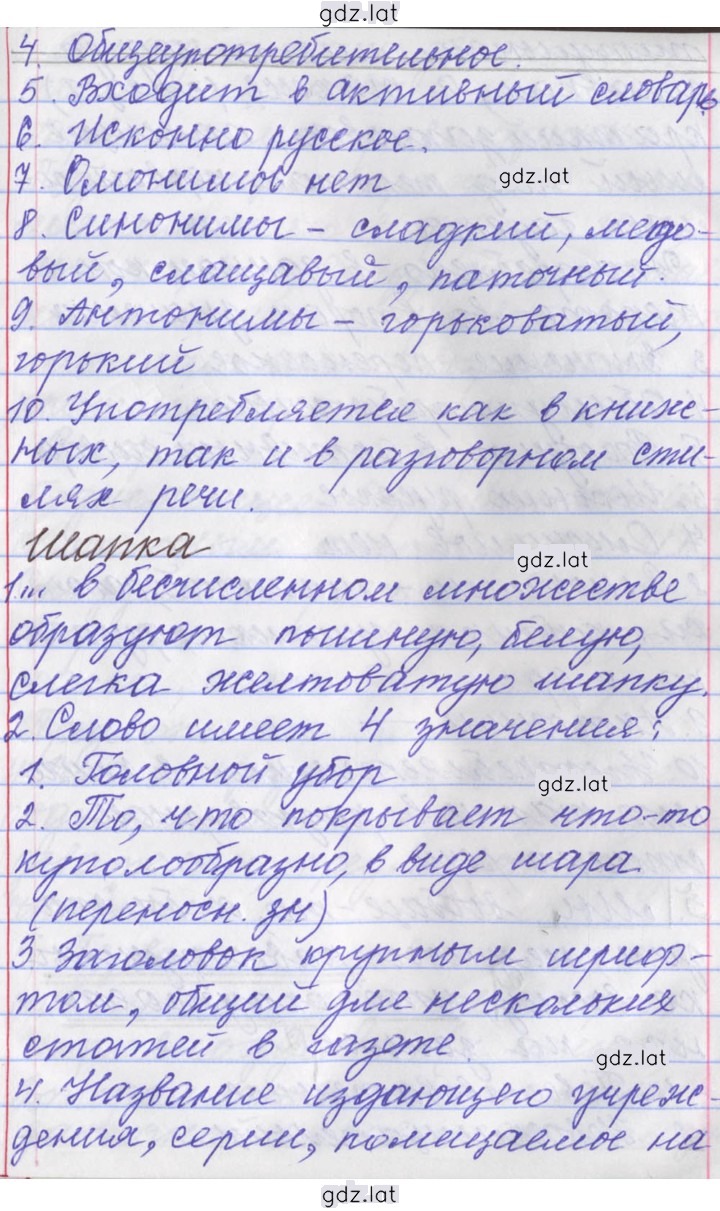 gdz.lat
4. Общеупотребительное.
5. Входит в активный словарь
6. Исконно русское.
7. Омонимов нет
gdz.lat
8 Синонимы – сладкий, медо-
вый, слащавый, паточный.
9. Антонимы – горьковатый,
горький
10. Употребляется как в книж-
ных, так и в разговорном сти-
лях речи.
Шапка
gdz.lat
1... в бесчисленном множестве
образуют пышную, белую,
слегка желтоватую шапку.
2. Слово имеет 4 значения:
1. Головной убор
gdz.lat
2. То, что покрывает что-то
куполообразно, в виде шара
(переносн. зн)
3. Заголовок крупным шриф-
том, общий для нескольких
статей в газете.
gdz.lat
4. Название издающего учреж-
дения, серии, помещаемое на
gdz.lat